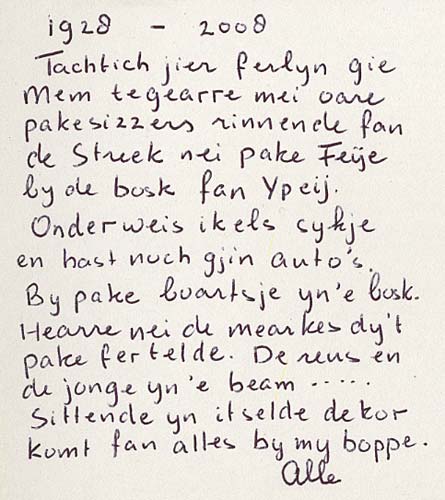 1928 - 2008
Tachtich jier ferlyn gie
Mem tegearre mei oare
pakesizzers rinnende fan
de Streek nei pake Feije
by de bosk fan Ypeij.
Onderweis ikels sykje
en hast noch gjin auto's.
By pake boartsje yn'e bosk.
Hearre nei de mearkes dy't
pake fertelde. De reus en
de jonge yn'e beam .....
Sittende yn itselde dekor
komt fan alles by my boppe.
Alle